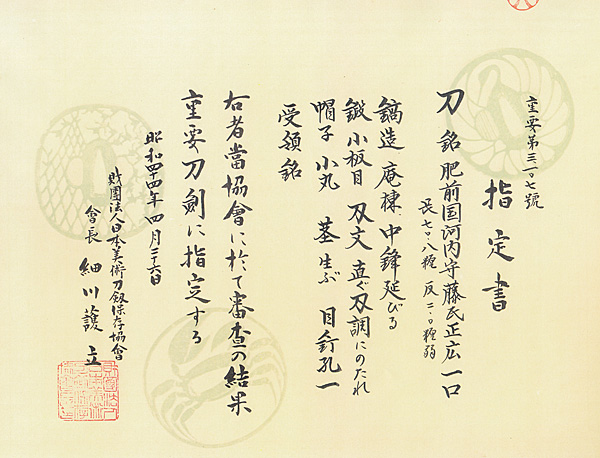 重要第三一〇七號
指定書
刀 銘 肥前国河内守藤氏正広 一口
長七〇・八糎 反二・〇糎弱
鎬造 庵棟 中鋒延びる
鍛 小板目 刃文 直ぐ刃調にのたれ
帽子 小丸 茎 生ぶ 目釘孔一
受領銘
右者當協會に於て審査の結果
重要刀劍に指定する
昭和四十四年四月二十六日
財團法人日本美術刀剱保存協會
會長 細川護立